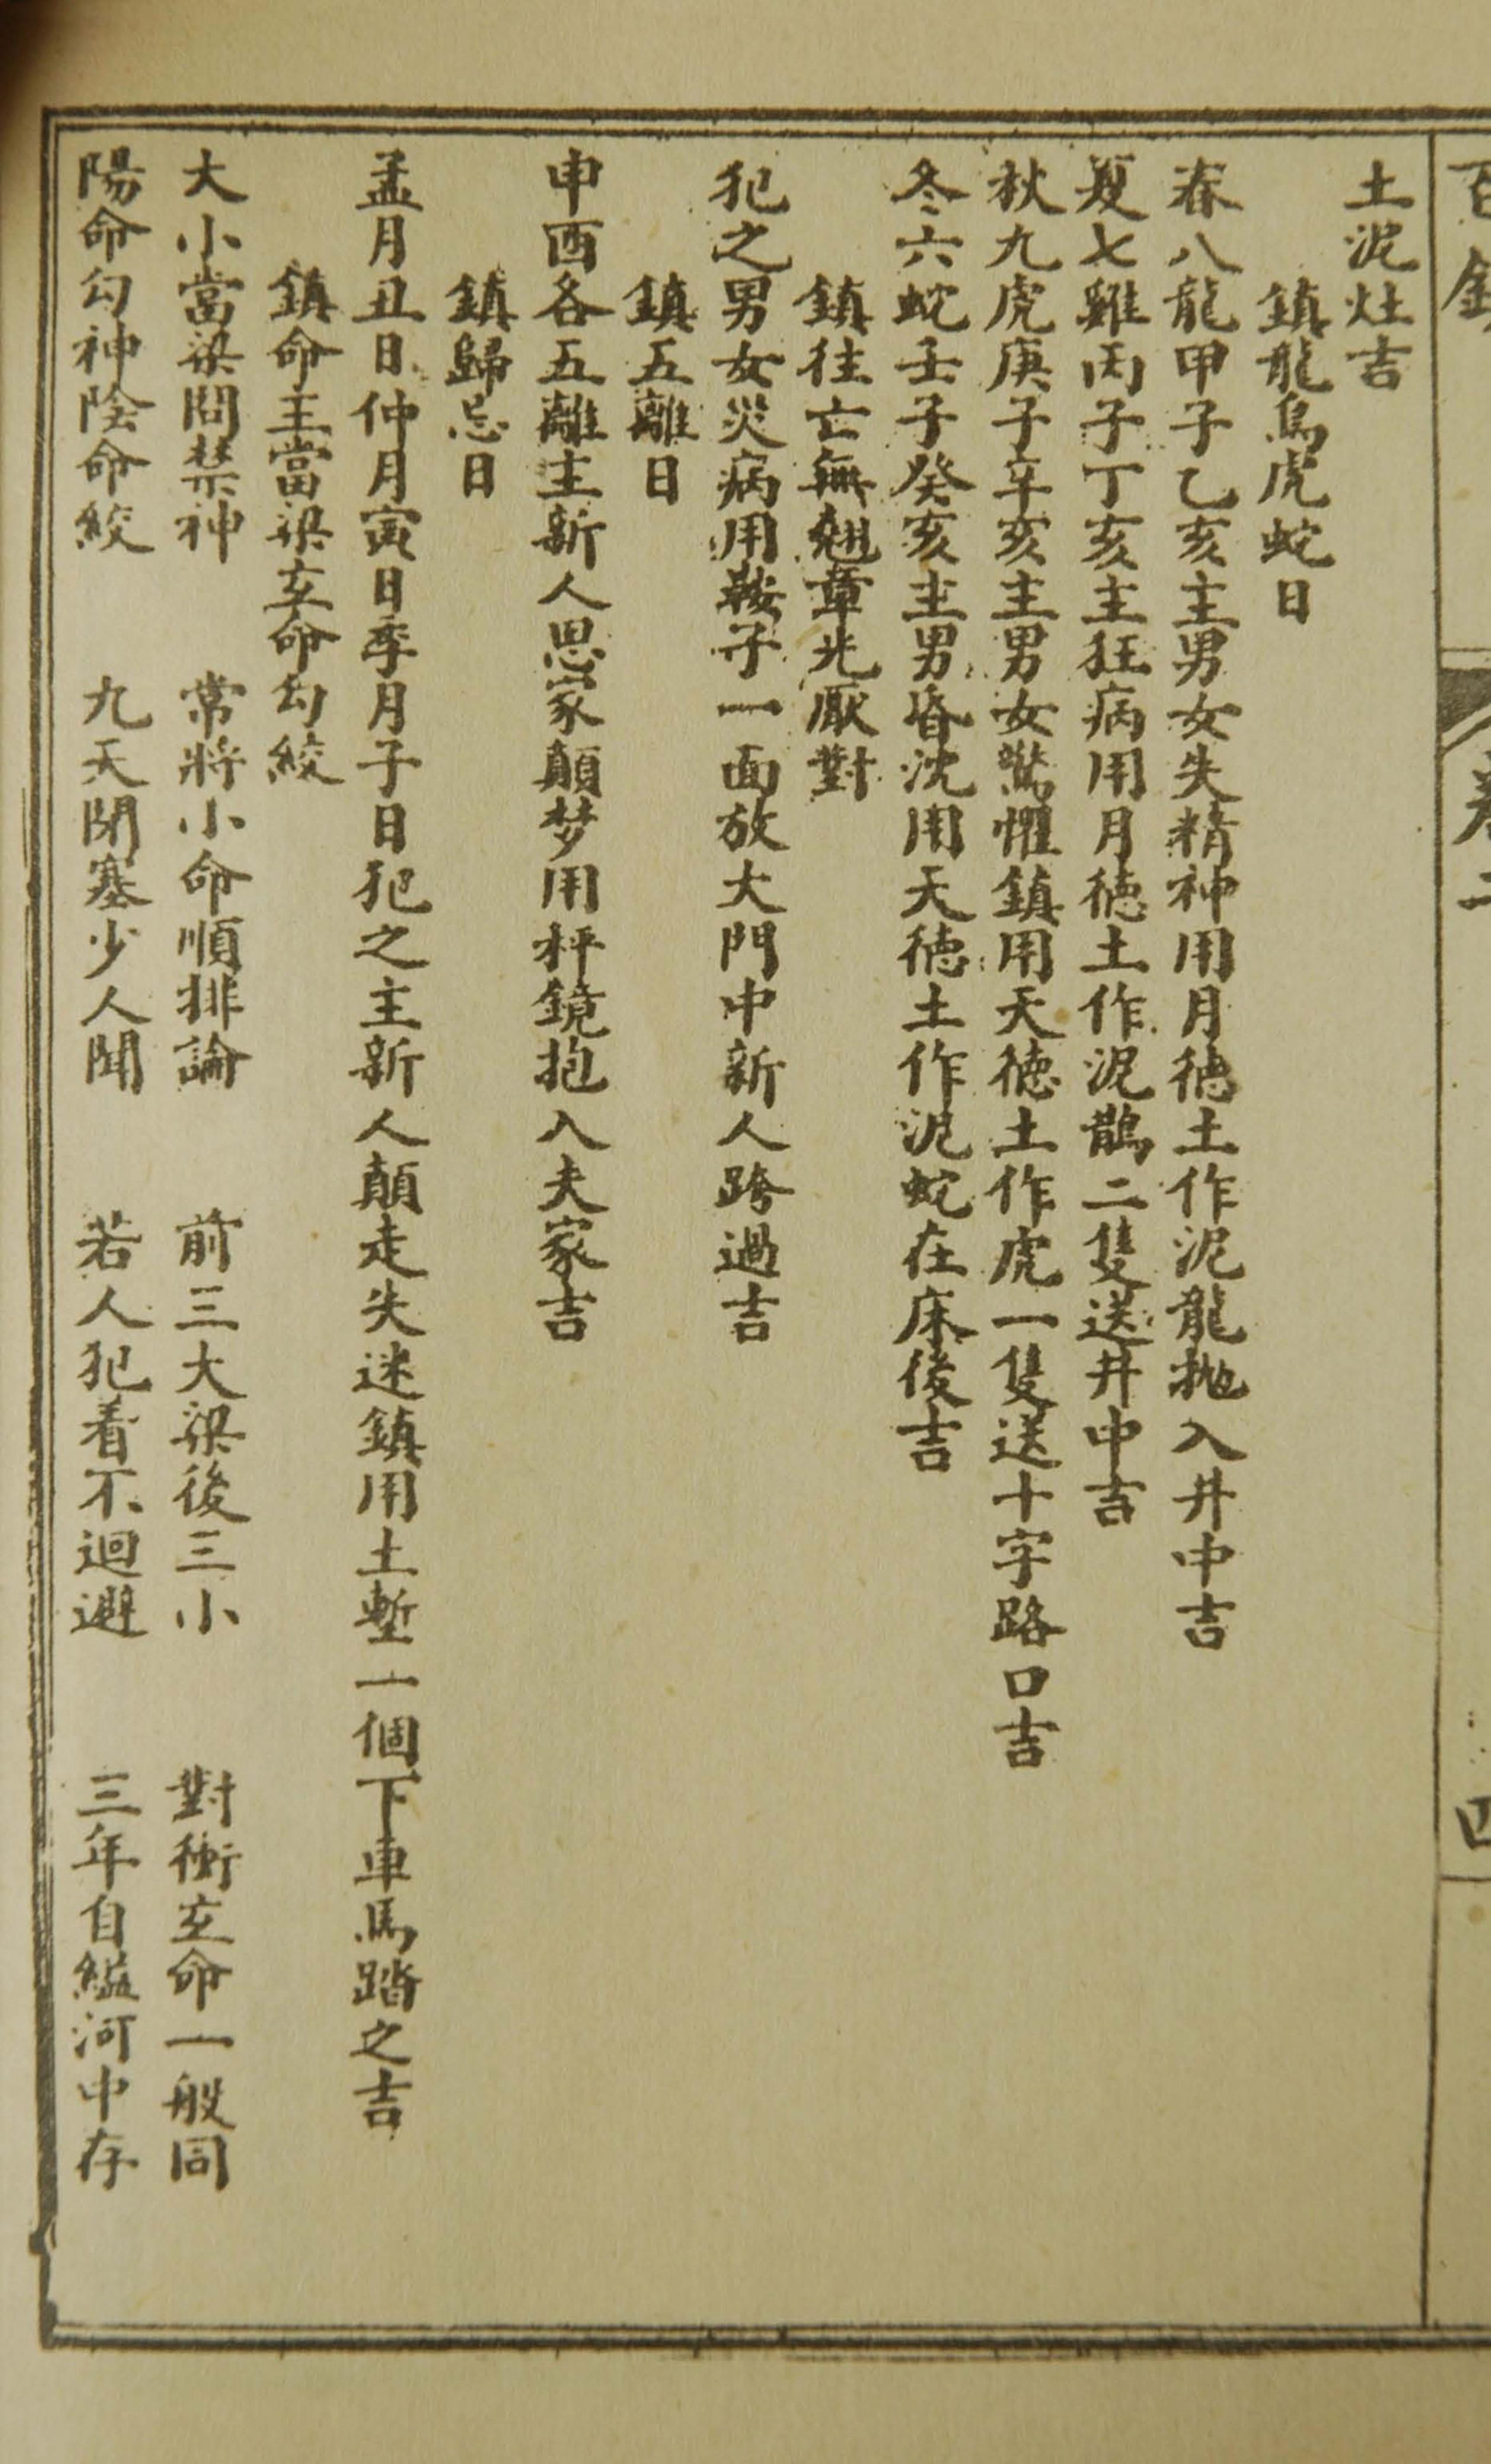 卷二
四
土泥灶吉
鎮龍烏虎蛇日
春八龍甲子乙亥主男女失精神用月德土作泥龍抛入井中吉
夏七雞丙子丁亥主狂病用月德土作泥鵲二隻送井中吉
秋九虎庚子辛亥主男女驚懼鎮用天德土作虎一隻送十字路口吉
冬六蛇壬子癸亥主男昏沈用天德土作泥蛇在床後吉
鎮往亡無翹章光厭對
犯之男女災病用鞍子一面放大門中新人跨過吉
鎮五離日
申酉各五離主新人思家顛梦用枰鏡抱入夫家吉
鎮歸忌日
孟月丑日仲月寅日季月子日犯之主新人顛走失迷鎮用土塹一個下車馬踏之吉
鎮命主當梁玄命勾絞
大小當梁問禁神 常將小命順排論 前三大梁後三小 對衝玄命一般同
陽命勾神陰命絞 九天閉塞少人聞 若人犯着不迴避 三年自縊河中存